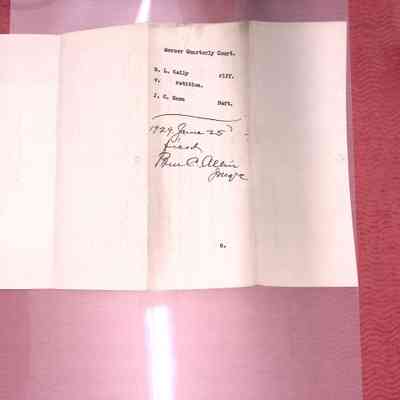 Mercer Quarterly Court.
R. L. Kelly Plff.
v. Petition.
J. C. Deft.
1929 June 25
filed
Ben C. Allin
Judge